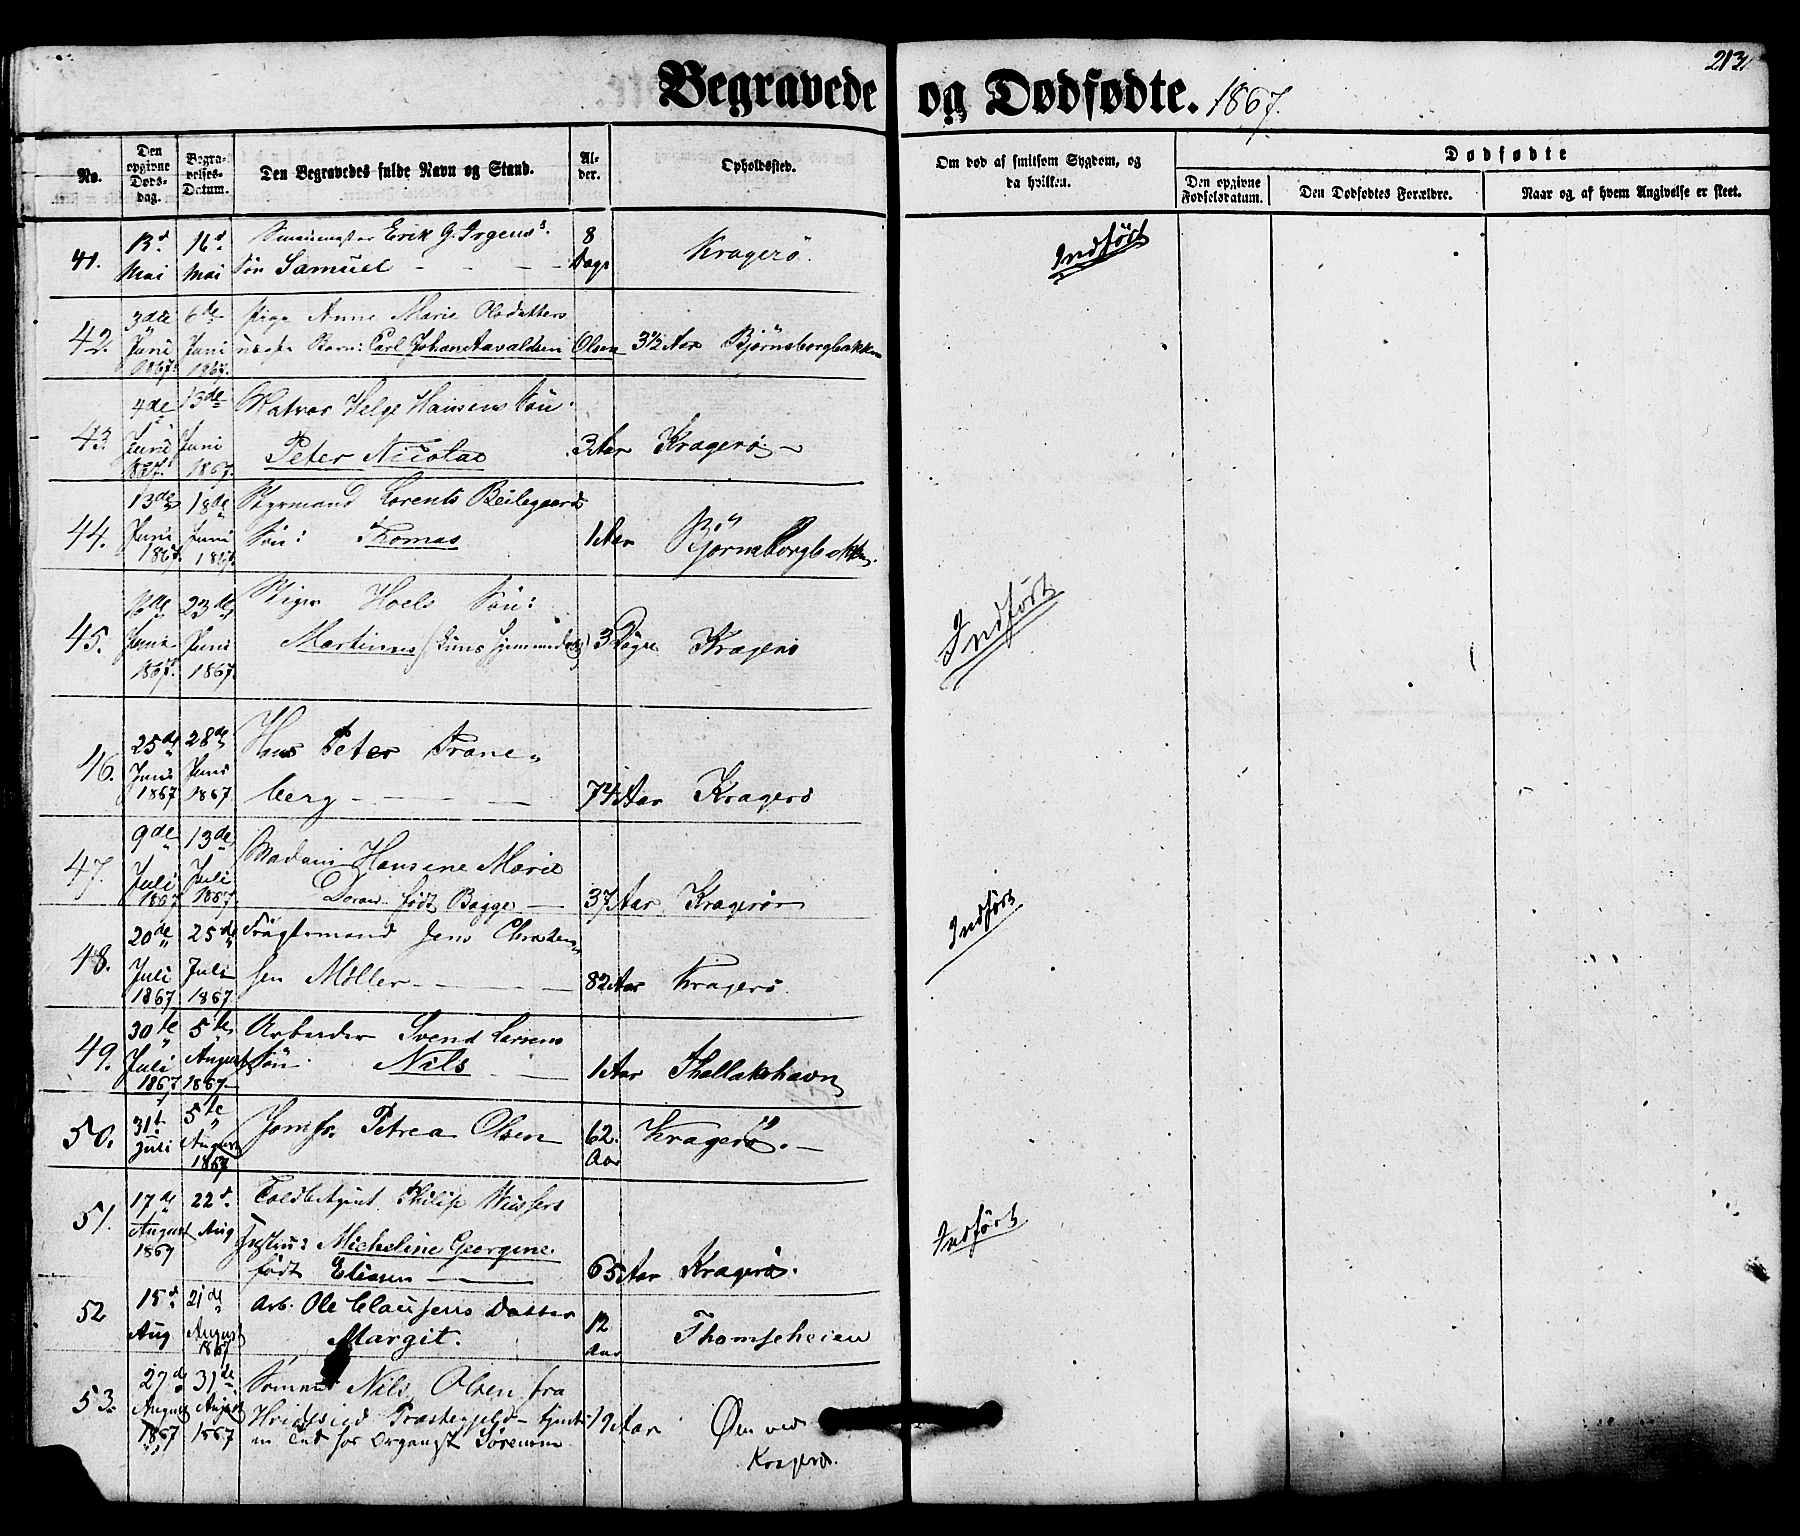 213
Begravede og Dødfødte. 1867.
No.
Den opgivne Døds-dag.
Begra-velses-Datum.
Den Begravedes fulde Navn og Stand.
Al-der.
Opholdssted.
Om død af smitsom Sygdom, og da hvilken.
Dødfødte
Den opgivne Fødselsdatum.
Den Dødfødtes Forældre.
Naar og af hvem Angivelse er skeet.
41. 13d Mai 16d Mai Erik G. Irgens's
Søn Samuel - - - - 8 Dage Kragerö.
Indført
42. 3die Juni 1867. 6de Juni 1867. Pige Anne Marie Olsdatters
uægte Barn: Carl Johan Aavaldsen Olsen 3½ Aar Bjørnsborgbakken
43. 4de Juni 1867. 13de Juni 1867. Matros Helge Hansens Søn
Peter Nicolai 3 Aar Kragerø -
44. 13de Juni 1867. 18de Juni 1867. Styrmand Lorents Beilegaards
Søn: Thomas 1 Aar Bjørnsborgbakken.
45. Juni 1867. 23de Juni 1867. Hoels Søn:
Martinus 3 Døgn Kragerö
Indført
46. 25de Juni 1867 28de Juni 1867 Hans Peter Trane-
berg - - - - 74 Aar Kragerø
47. 9de Juli 1867 13de Juli 1867. Madam Hansine Marie
født Bagge - 37 Aar Kragerø
48. 20de Juli 1867 25de Juli 1867. Jens Christen-
sen Möller - - - 82 Aar Kragerø
Indført
49. 30te Juli 1867 5te August 1867 Arbeider Svend Larsens
Søn: Nils - 1 Aar Thallakshavn
50. 31t Juli 5te August 1867 Jomfr. Petrea Olsen 62 Aar Kragerø. -
51. 17de August 1867 22d Aug Toldbetjent Philip
Hustru: Micheline Georgine
født Eliasen - 65 Aar Kragerø.
Indført
52 15d Aug 21de August 1867 Arb. Ole Clausens Datter
Margit. 12 Aar Thomseheien
53. 27de August 1867 31de August 1867 Sømand Nils Olsen fra
Hvidesöed Præstegjeld - 19 Aar Øen ved
Sørensen Kragerø.